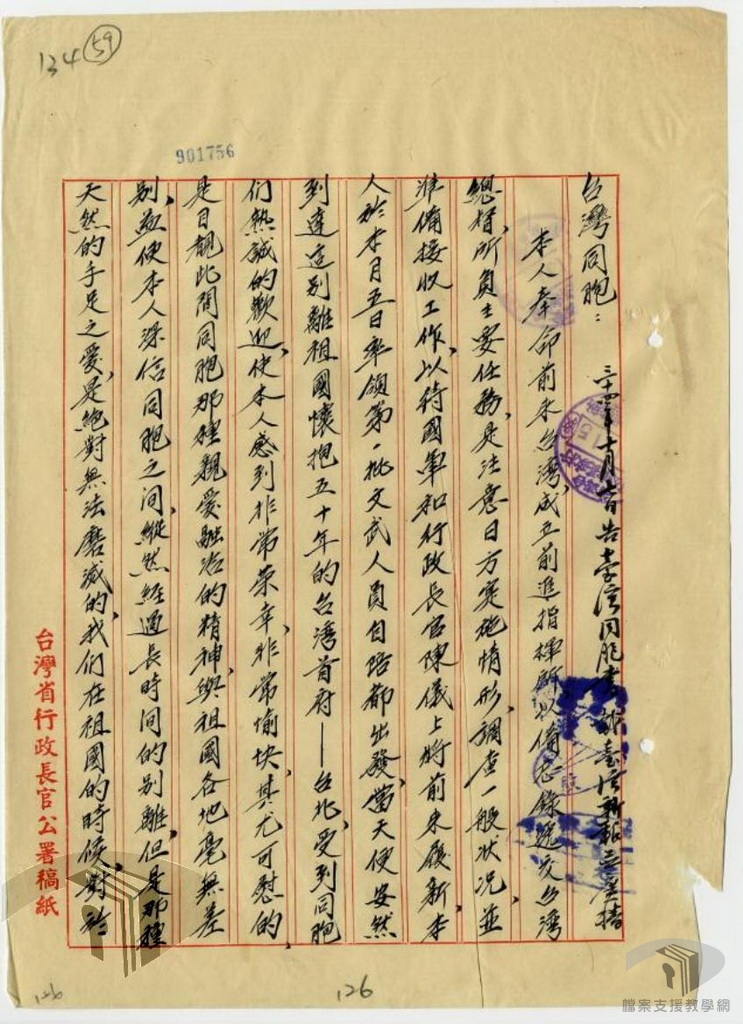 134 59
901756
台灣同胞：
三十四年十月　日告臺灣同胞書　　臺灣新報
本人奉命前來台灣，成立前進指揮所，以備忘錄遞交台灣
總督，所負主要任務，是注意日方實施情形，調查一般狀況，並
準備接收工作，以待國軍和行政長官陳儀上將前來履新，本
人於本月五日率領第一批文武人員自陪都出發，當天便安然
到達這別離祖國懷抱五十年的台灣首府——台北，受到同胞
们熱誠的歡迎，使本人感到非常榮幸，非常愉快，其尤可慰的，
是目覩此間同胞那種親愛融洽的精神，與祖國各地毫無差
别，益使本人深信同胞之间，縱然經過長時间的别離，但是那種
天然的手足之愛，是絕對無法磨滅的，我们在祖國的時候，對於
台灣省行政長官公署稿紙
126
126
檔案支援教學網